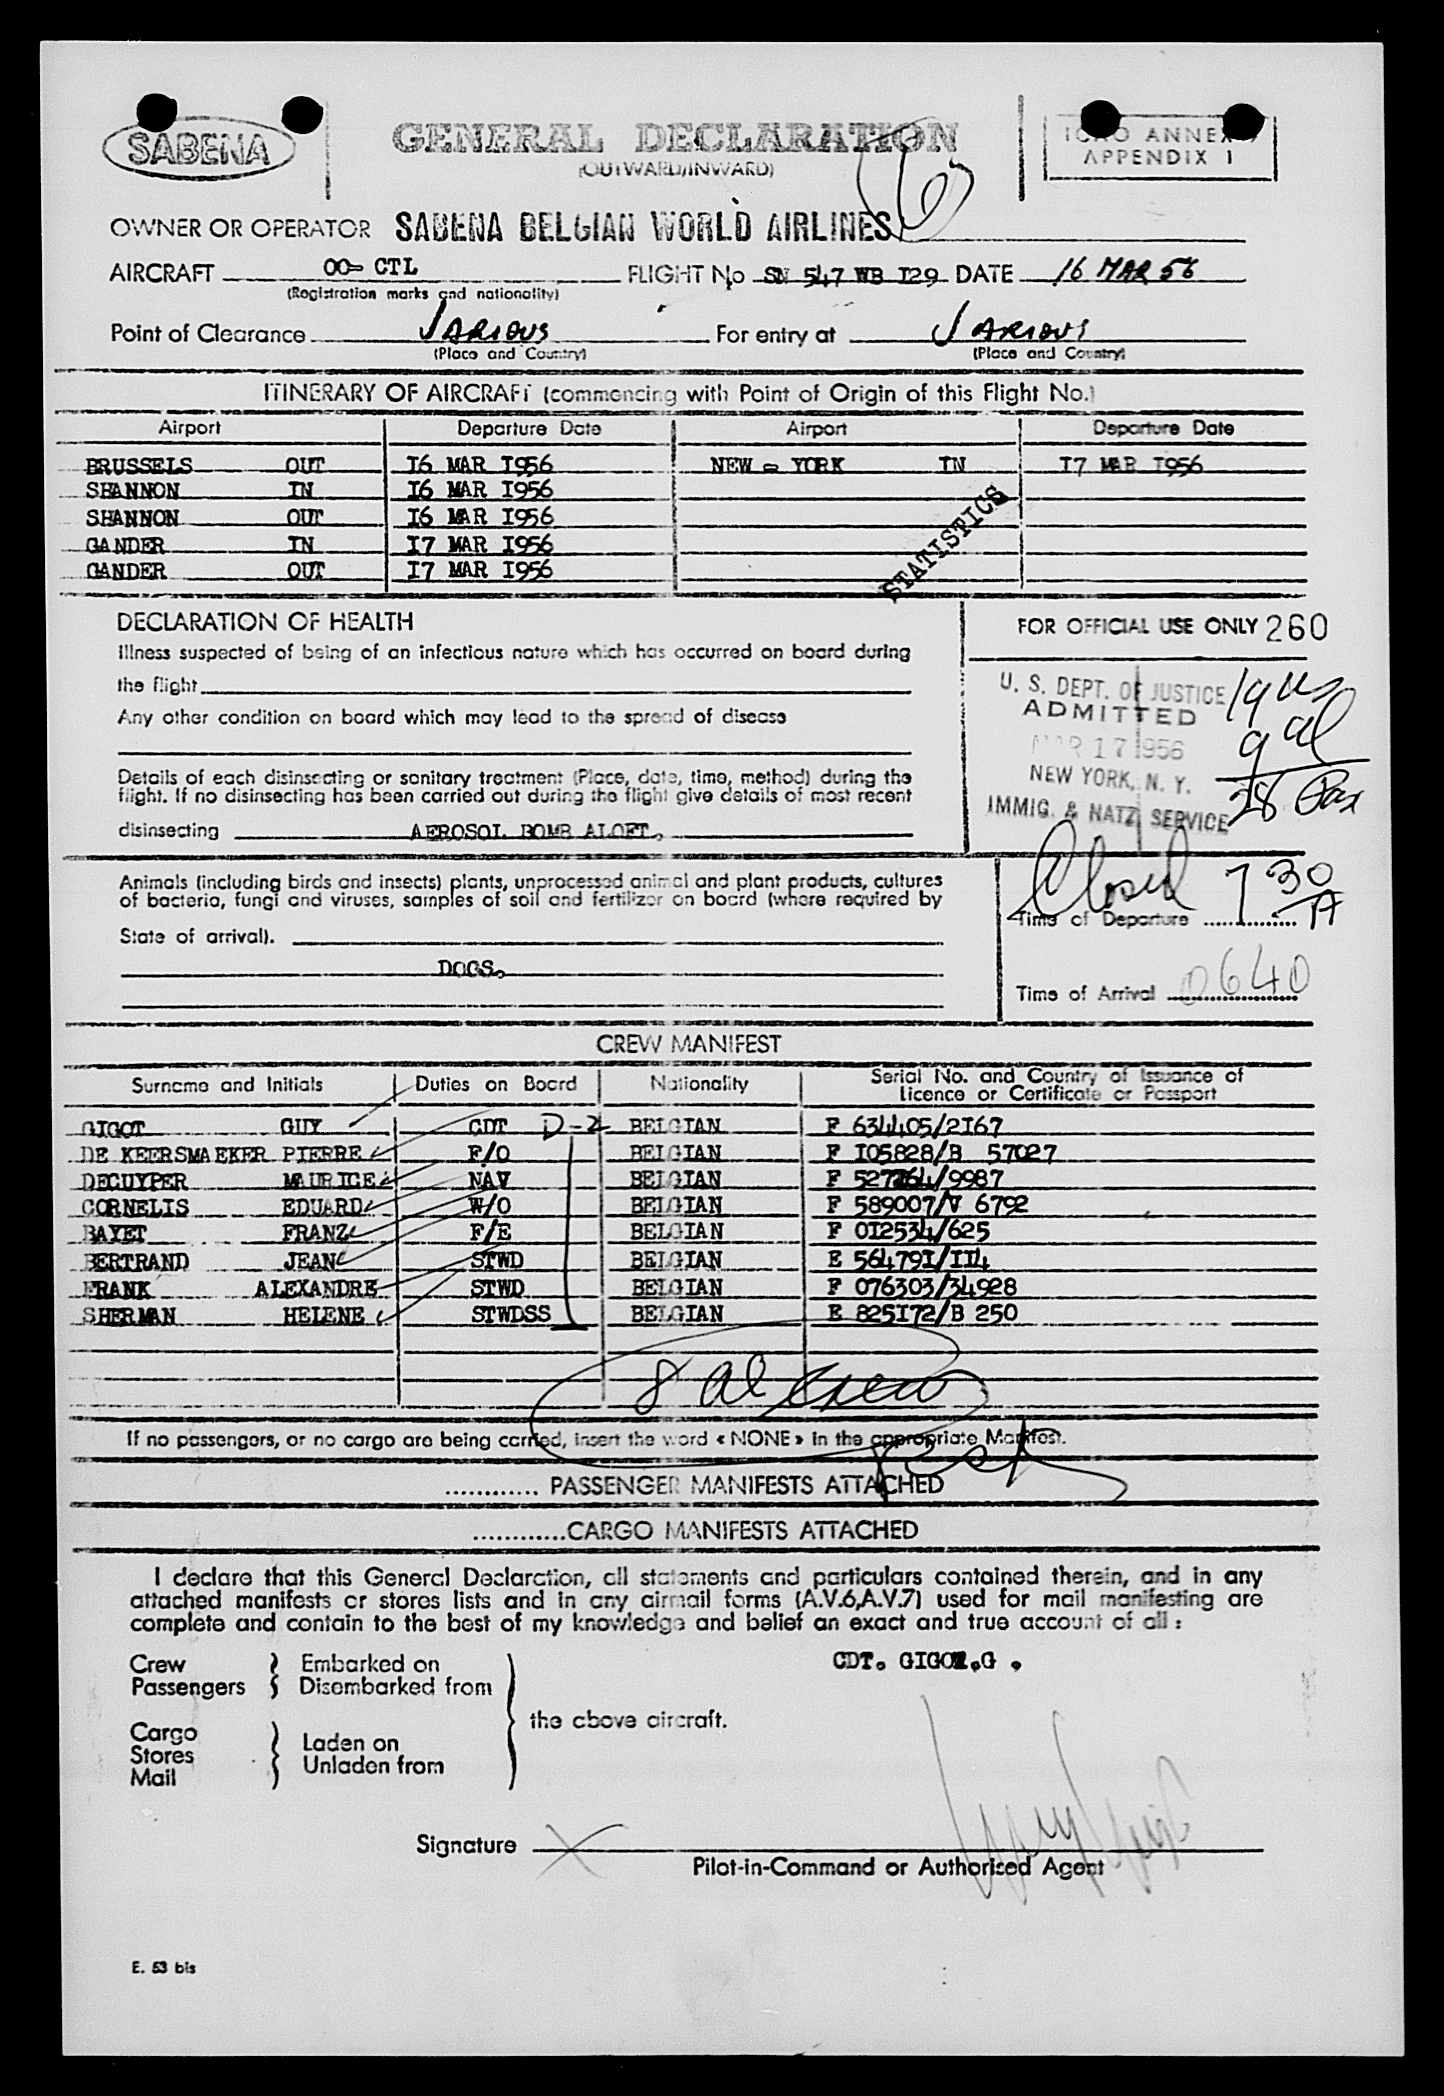 SABENA
GENERAL DECLARATION
(OUTWARD/INWARD)
ICAO ANNEX
APPENDIX 1
OWNER OR OPERATOR SABENA BELGIAN WORLD AIRLINES
AIRCRAFT OO- CTL FLIGHT No SN 547 WB I29 DATE 16 MAR 56
(Registration marks and nationality)
Point of Clearance VARIOUS For entry at VARIOUS
(Place and Country) (Place and Country)
ITINERARY OF AIRCRAFT (commencing with Point of Origin of this Flight No.)
Airport Departure Date Airport Departure Date
BRUSSELS OUT I6 MAR I956 NEW = YORK IN I7 MAR I956
SHANNON IN I6 MAR I956
SHANNON OUT I6 MAR I956
GANDER IN I7 MAR I956
GANDER OUT I7 MAR I956
STATISTICS
DECLARATION OF HEALTH
Illness suspected of being of an infectious nature which has occurred on board during
the flight
Any other condition on board which may lead to the spread of disease
Details of each disinsecting or sanitary treatment (Place, date, time, method) during the
flight. If no disinsecting has been carried out during the flight give details of most recent
disinsecting AEROSOL BOMB ALOFT.
FOR OFFICIAL USE ONLY 260
U. S. DEPT. OF JUSTICE
ADMITTED
MAR 17 1956
NEW YORK, N. Y.
IMMIG. & NATZ. SERVICE
19 us
9 al
28 Pax
Animals (including birds and insects) plants, unprocessed animal and plant products, cultures
of bacteria, fungi and viruses, samples of soil and fertilizer on board (where required by
State of arrival).
DOGS.
Closed 7 30 A
Time of Departure
Time of Arrival 0640
CREW MANIFEST
Surname and Initials Duties on Board Nationality Serial No. and Country of Issuance of
Licence or Certificate or Passport
GIGOT GUY CDT D-2 BELGIAN F 634405/2I67
DE KEERSMAEKER PIERRE F/O BELGIAN F I05828/B 57027
DECUYPER MAURICE NAV BELGIAN F 527764/9987
CORNELIS EDUARD W/O BELGIAN F 589007/V 6792
BAYET FRANZ F/E BELGIAN F 0I2534/625
BERTRAND JEAN STWD BELGIAN E 56479I/II4
FRANK ALEXANDRE STWD BELGIAN F 076303/34928
SHERMAN HELENE STWDSS BELGIAN E 825I72/B 250
8 al crew
If no passengers, or no cargo are being carried, insert the word « NONE » in the appropriate Manifest.
............ PASSENGER MANIFESTS ATTACHED
............CARGO MANIFESTS ATTACHED
I declare that this General Declaration, all statements and particulars contained therein, and in any
attached manifests or stores lists and in any airmail forms (A.V.6,A.V.7) used for mail manifesting are
complete and contain to the best of my knowledge and belief an exact and true account of all :
CDT. GIGOT.G .
Crew
Passengers
Embarked on
Disembarked from
Cargo
Stores
Mail
Laden on
Unladen from
the above aircraft.
Signature X
Pilot-in-Command or Authorized Agent
E. 53 bis